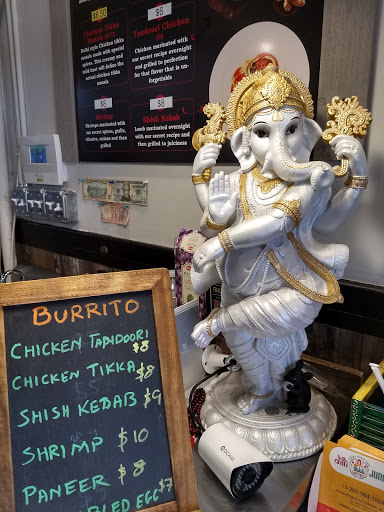 $6.50
$6
Chicken Tikka
Masala
Delhi style Chicken tikka
masala made with special
spices. This creamy and
mild
actual chicken tikka
masala
Tandoori Chicken
Chicken marinated with
our secret recipe overnight
and grilled to perfection
for that flavor that is un-
forgettable
$8
$8
Shrimp
Shrimps marinated with
our secret spices, garlic,
cilantro, onions and then
grilled
Shish Kebab
Lamb marinated overnight
with our secret recipe and
then grilled to juiciness
BURRITO
CHICKEN TANDOORI $8
CHICKEN TIKKA $8
SHISH KEBAB $9
SHRIMP $10
PANEER $8
BLED EGG $7